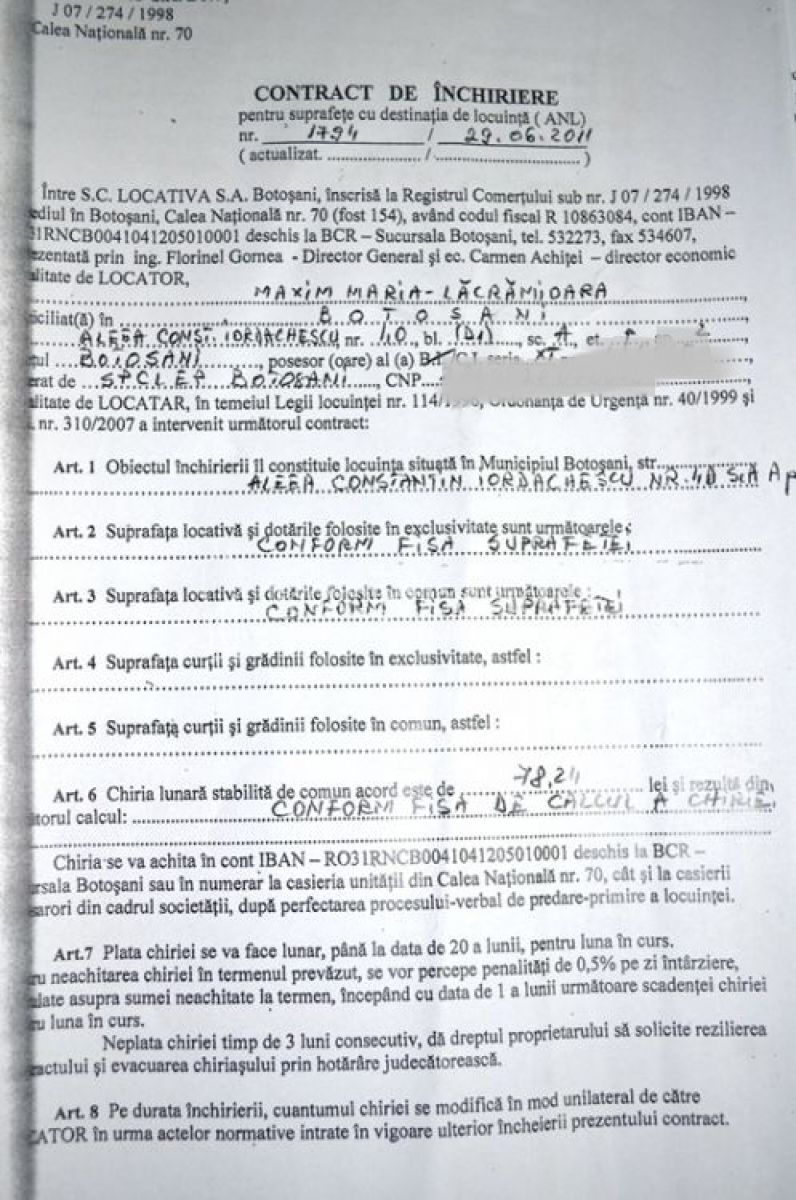 J 07 / 274 / 1998
Calea Națională nr. 70
CONTRACT DE ÎNCHIRIERE
pentru suprafețe cu destinația de locuință ( ANL)
nr. 1794 / 29.06.2011
( actualizat. .................... / .............................. )
Între S.C. LOCATIVA S.A. Botoșani, înscrisă la Registrul Comerțului sub nr. J 07 / 274 / 1998
ediul în Botoșani, Calea Națională nr. 70 (fost 154), având codul fiscal R 10863084, cont IBAN –
31RNCB0041041205010001 deschis la BCR – Sucursala Botoșani, tel. 532273, fax 534607,
ezentată prin ing. Florinel Gornea - Director General și ec. Carmen Achiței – director economic
alitate de LOCATOR,
MAXIM MARIA-LĂCRĂMIOARA
iciliat(ă) în BOTOSANI
ALEEA CONST. IORDACHESCU, nr. 10, bl. , sc. A, et.
ul BOTOSANI, posesor (oare) al (a) C.I. seria XT
erat de S.P.C.L.E.P. BOTOSANI, CNP
alitate de LOCATAR, în temeiul Legii locuinței nr. 114/ , Ordonanța de Urgență nr. 40/1999 și
nr. 310/2007 a intervenit următorul contract:
Art. 1 Obiectul închirierii îl constituie locuința situată în Municipiul Botoșani, str.
ALEEA CONSTANTIN IORDACHESCU NR. 10 Sc A Ap
Art. 2 Suprafața locativă și dotările folosite în exclusivitate sunt următoarele :
CONFORM FISA SUPRAFETEI
Art. 3 Suprafața locativă și dotările folosite în comun sunt următoarele :
CONFORM FISA SUPRAFETEI
Art. 4 Suprafața curții și grădinii folosite în exclusivitate, astfel :
Art. 5 Suprafața curții și grădinii folosite în comun, astfel :
Art. 6 Chiria lunară stabilită de comun acord este de 78,24 lei și rezultă din
ătorul calcul: CONFORM FISA DE CALCUL A CHIRIEI
Chiria se va achita în cont IBAN – RO31RNCB0041041205010001 deschis la BCR –
ursala Botoșani sau în numerar la casieria unității din Calea Națională nr. 70, cât și la casierii
sarori din cadrul societății, după perfectarea procesului-verbal de predare-primire a locuinței.
Art.7 Plata chiriei se va face lunar, până la data de 20 a lunii, pentru luna în curs.
ru neachitarea chiriei în termenul prevăzut, se vor percepe penalități de 0,5% pe zi întârziere,
late asupra sumei neachitate la termen, începând cu data de 1 a lunii următoare scadenței chiriei
ru luna în curs.
Neplata chiriei timp de 3 luni consecutiv, dă dreptul proprietarului să solicite rezilierea
ractului și evacuarea chiriașului prin hotărâre judecătorească.
Art. 8 Pe durata închirierii, cuantumul chiriei se modifică în mod unilateral de către
CATOR în urma actelor normative intrate în vigoare ulterior încheierii prezentului contract.